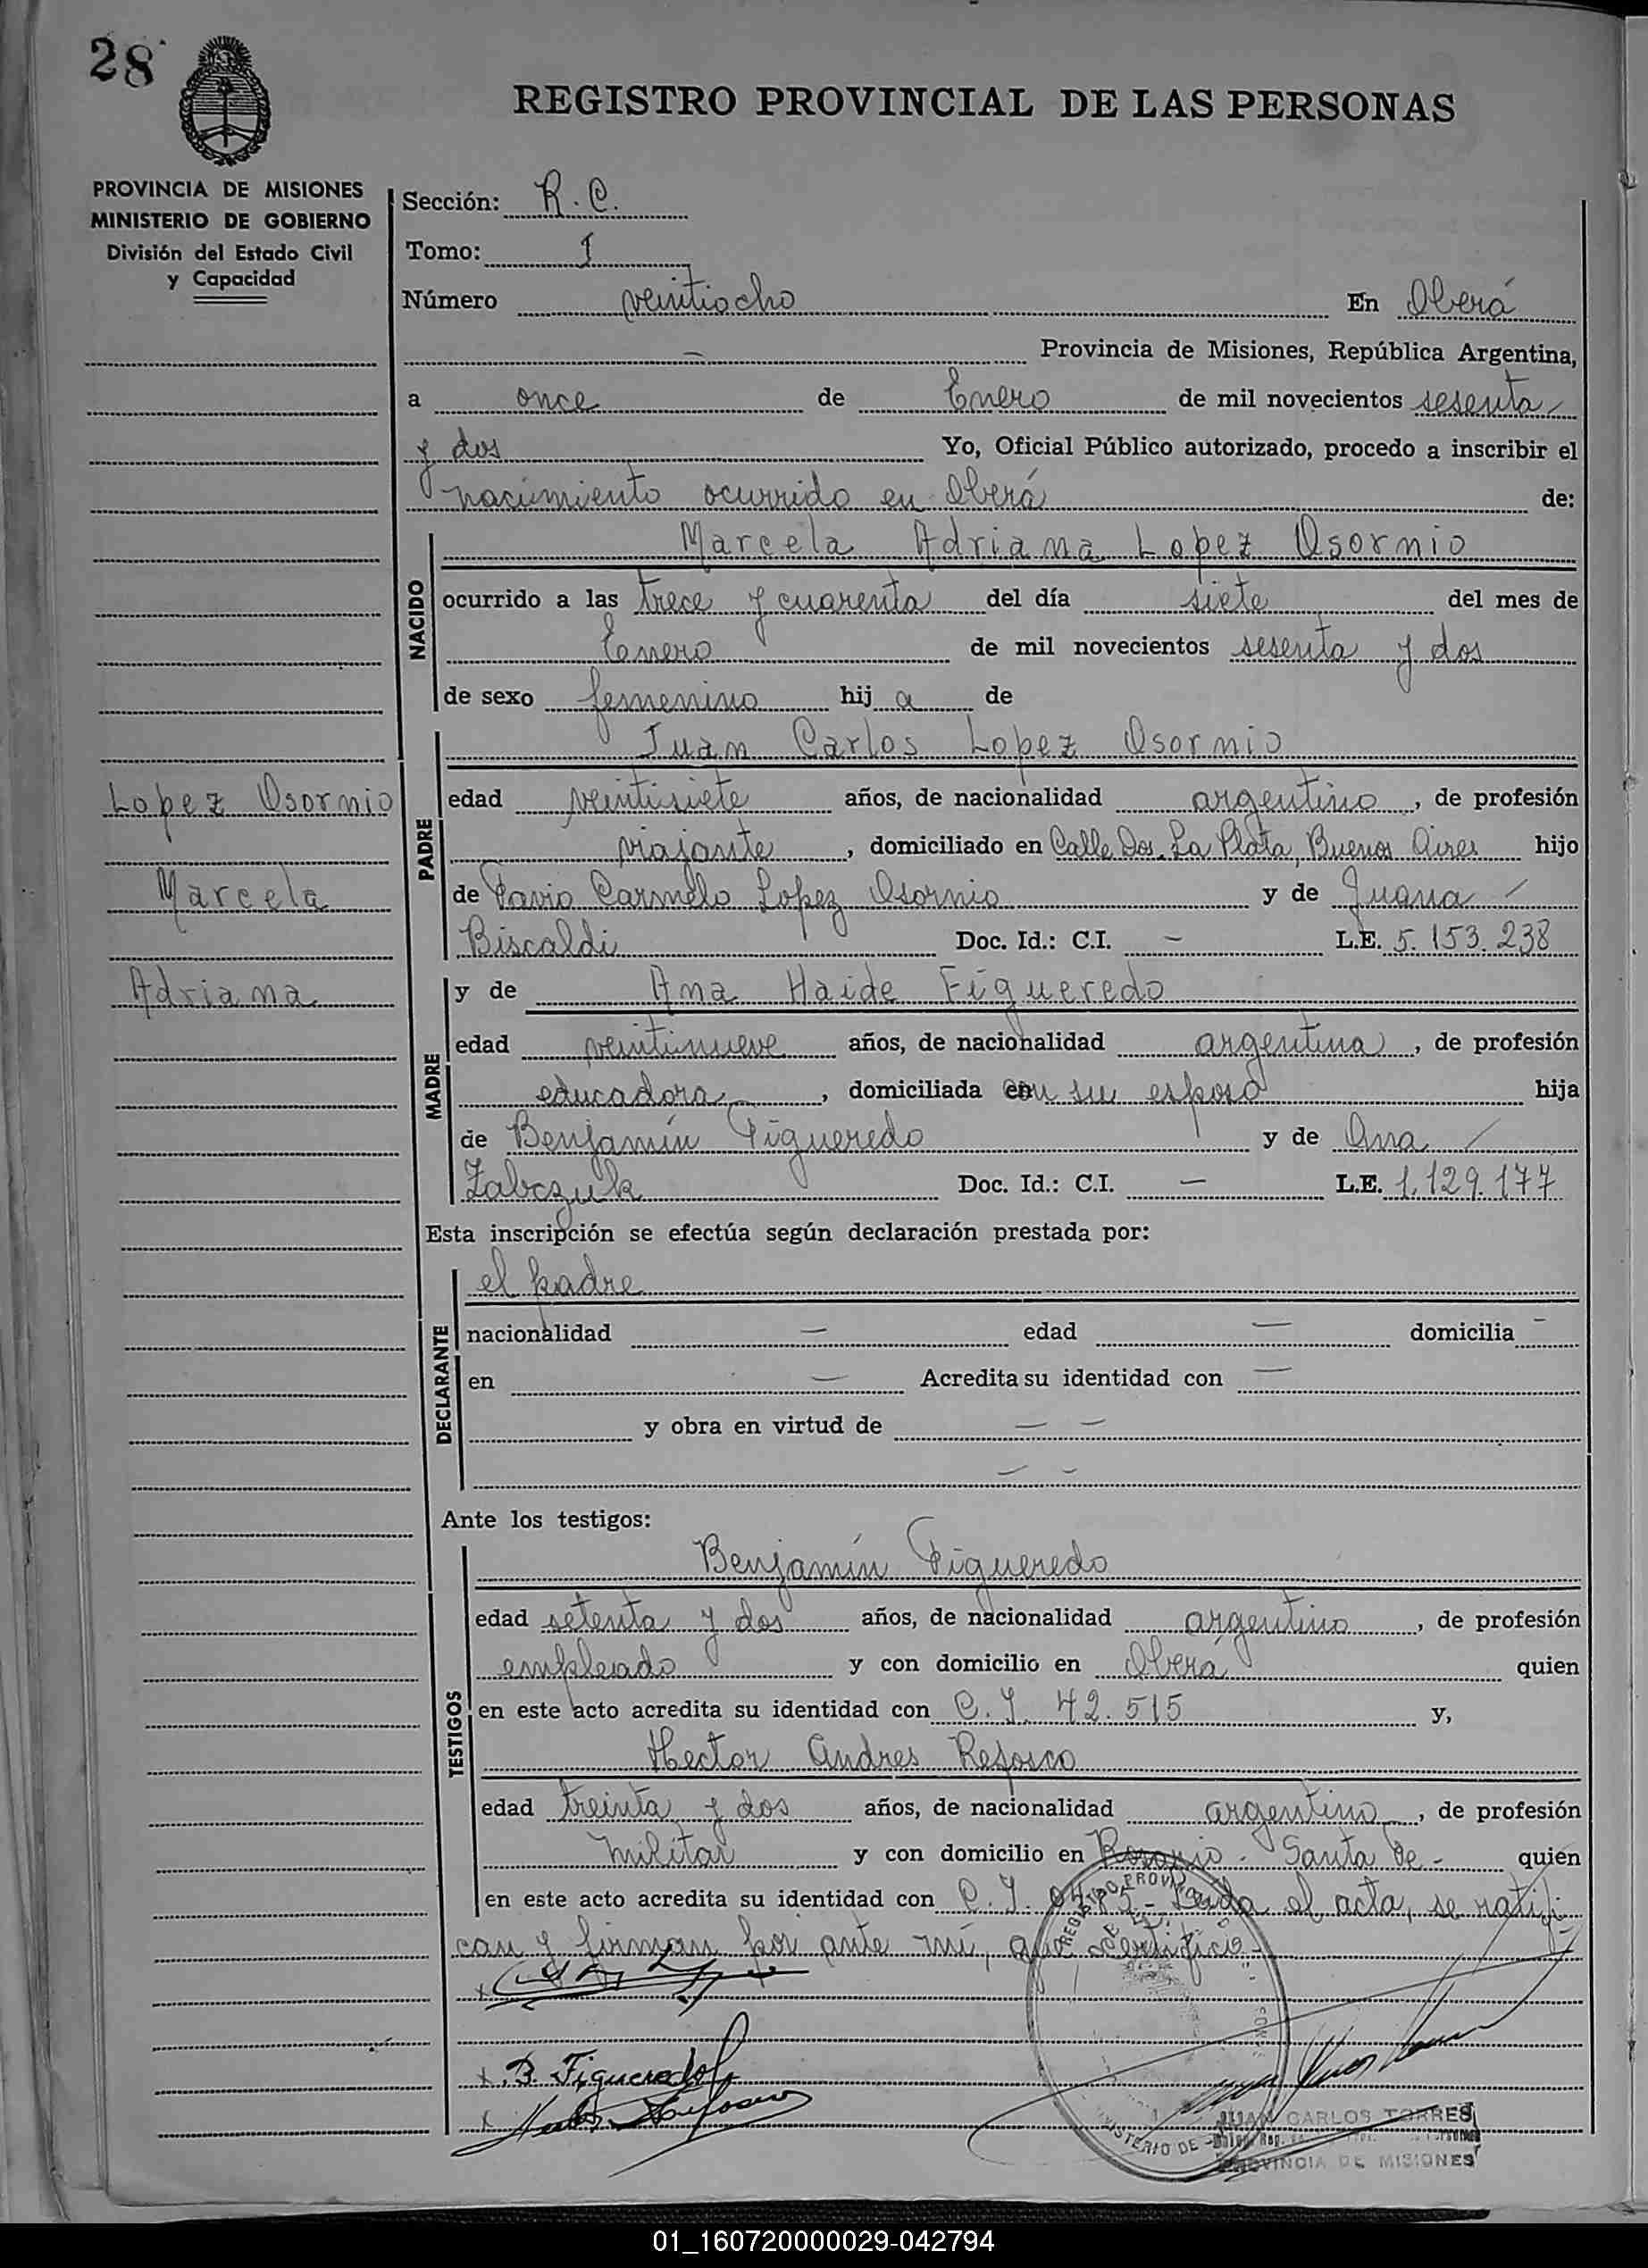 28
REGISTRO PROVINCIAL DE LAS PERSONAS
PROVINCIA DE MISIONES
MINISTERIO DE GOBIERNO
División del Estado Civil
y Capacidad
Sección: R. C.
Tomo: I
Número veintiocho En Oberá
— Provincia de Misiones, República Argentina,
a once de Enero de mil novecientos sesenta
y dos Yo, Oficial Público autorizado, procedo a inscribir el
nacimiento ocurrido en Oberá de:
NACIDO
Marcela Adriana Lopez Osornio
ocurrido a las trece y cuarenta del día siete del mes de
Enero de mil novecientos sesenta y dos
de sexo femenino hij a de
PADRE
Juan Carlos Lopez Osornio
Lopez Osornio
Marcela
Adriana
edad veintisiete años, de nacionalidad argentino, de profesión
viajante, domiciliado en Calle Dos. La Plata, Buenos Aires hijo
de Carmelo Lopez Osornio y de Juana
Biscaldi Doc. Id.: C.I. — L.E. 5.153.238
MADRE
y de Ana Haide Figueredo
edad veintinueve años, de nacionalidad argentina, de profesión
educadora, domiciliada con su esposo hija
de Benjamín Figueredo y de Ana
Zabczuk Doc. Id.: C.I. — L.E. 1.129.177
Esta inscripción se efectúa según declaración prestada por:
DECLARANTE
el padre
nacionalidad — edad — domicilia —
en — Acredita su identidad con —
y obra en virtud de — —
— —
Ante los testigos:
TESTIGOS
Benjamín Figueredo
edad setenta y dos años, de nacionalidad argentino, de profesión
empleado y con domicilio en Oberá quien
en este acto acredita su identidad con C. I. 42.515 y,
Hector Andres Refosco
edad treinta y dos años, de nacionalidad argentino, de profesión
militar y con domicilio en Rosario - Santa Fe - quien
en este acto acredita su identidad con C. I. Leida el acta, se ratifi-
can y firman por ante mí, que certifico -
B. Figueredo
JUAN CARLOS TORRES
PROVINCIA DE MISIONES
01_160720000029-042794